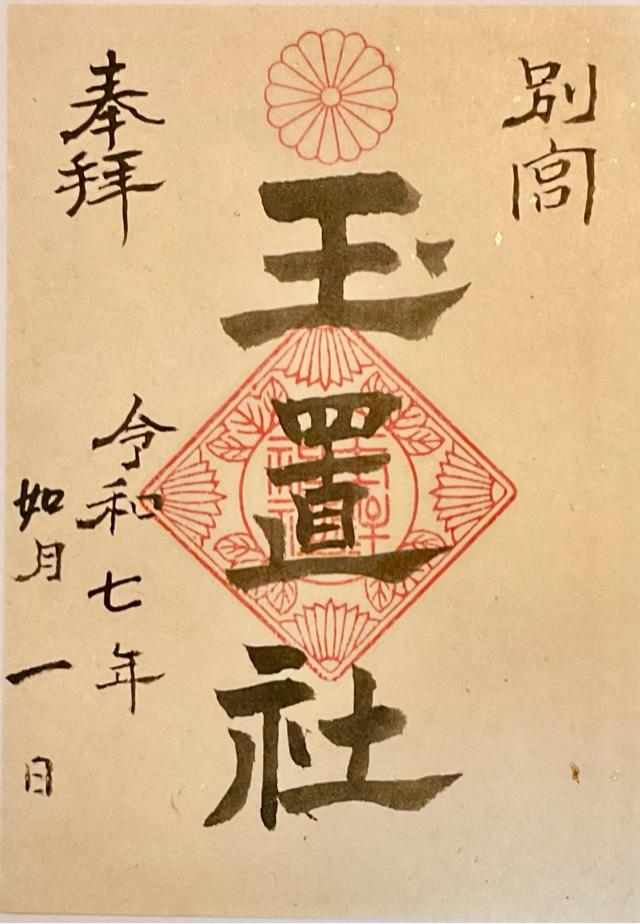 別宮
玉置社
奉拝
令和七年
如月一日